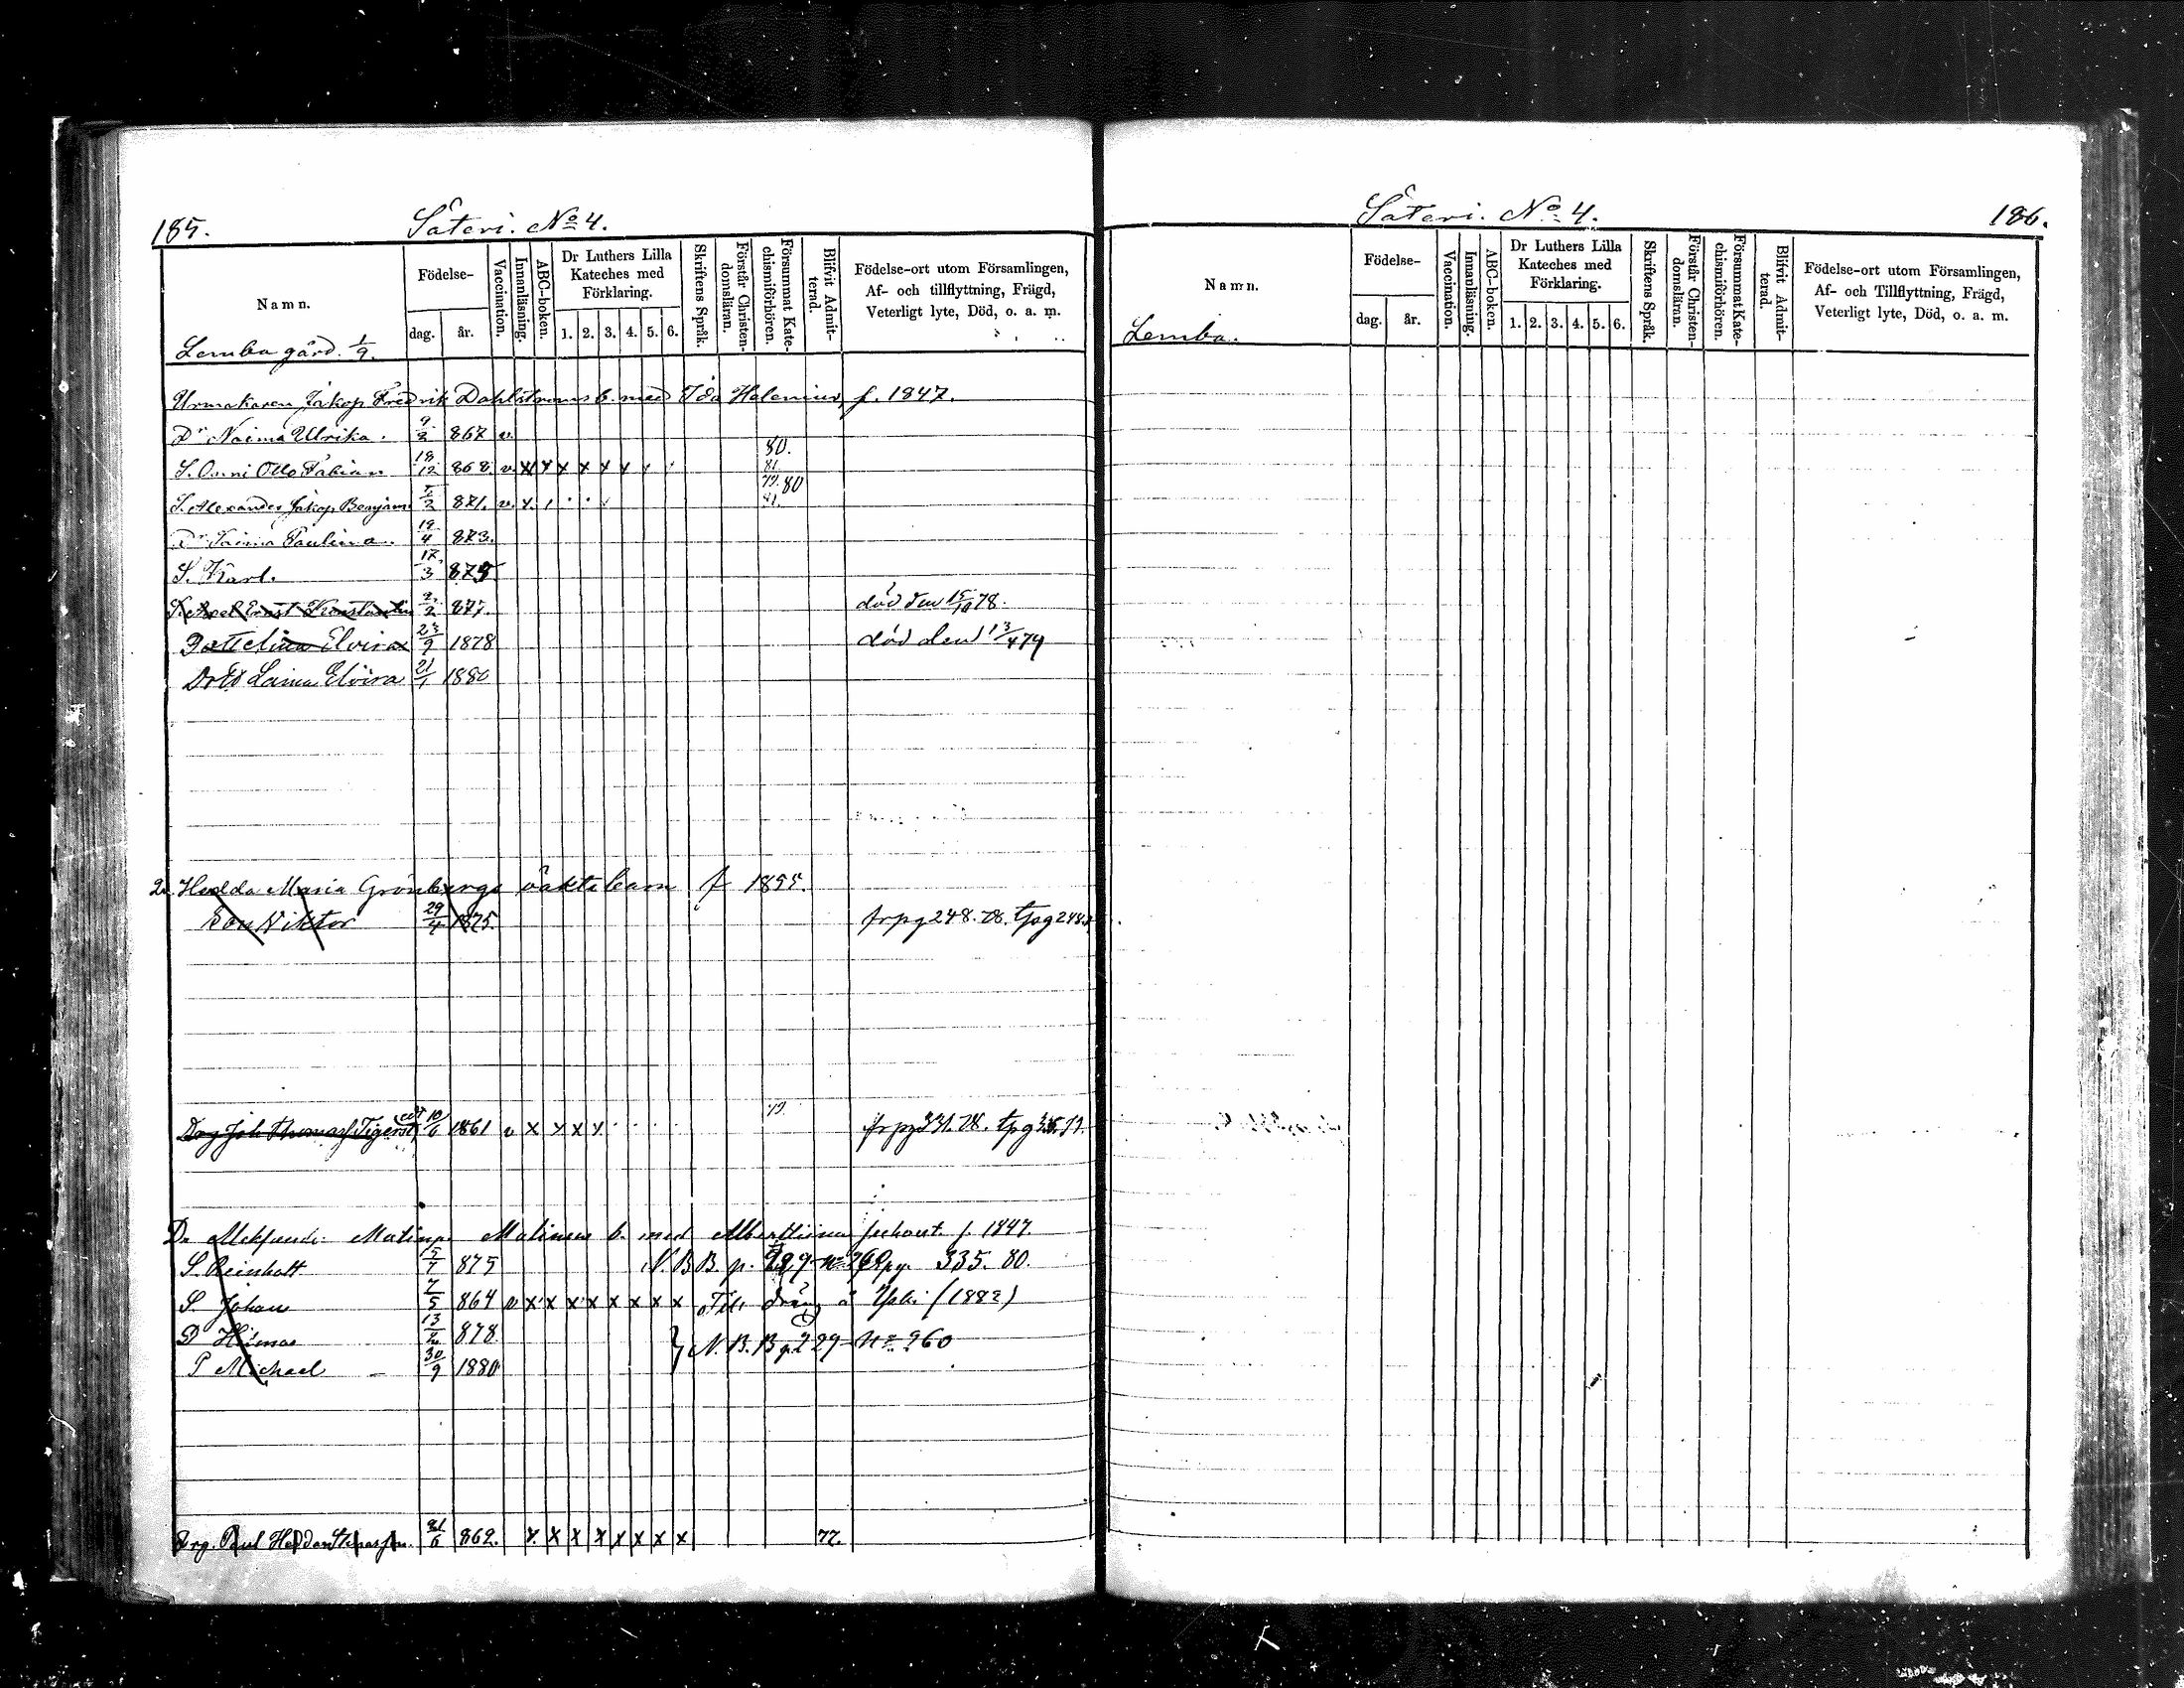 185. Såteri. No 4.
Namn.
Födelse-
dag. år.
Vaccination.
Innanläsning.
ABC-boken.
Dr Luthers Lilla Kateches med Förklaring.
1. 2. 3. 4. 5. 6.
Skriftens Språk.
Förstår Christen-domsläran.
Försummat Kate-chismiförhören.
Blifvit Admit-terad.
Födelse-ort utom Församlingen,
Af- och tillflyttning, Frägd,
Veterligt lyte, Död, o. a. m.
Lemba gård. 1/9.
Urmakaren Jakop Fredrik Dahlströms b. med Ida Helenius, f. 1847.
Dr Naima Ulrika. 9/2 867 v.
S. Onni Otto Fabian 18/12 868. v. x x x x x x 80. 81.
S. Alexander Jakop Benjam. 2 871. v. x. 79. 80 81.
Dr Saima Paulina. 19/4 873.
S. Karl. 17/3 875
S. Axel Ernst Konstantin 2/2 877. död den 15/10 78.
Elvira 23/9 1878 död den 13/4 79
Laina Elvira 21/1 1880
Hedda Maria Grönbergs oäkta barn f 1855.
Son Viktor 29/4 1875. frpg 248. 78. tpg 248.
Drg Joh Thomas Tigerst 10/6 1861 v x x x x 79. frpg 331. 78. tpg
Matinp. Malinens b. med Albertiina f. 1847.
S. Reinholt 5/7 875 N. B B. p. 335. 80.
S Johan 7/5 864 v x x x x x x x x Till dräng å (1882)
D Hilma 13/2 878 N. B. B p. 229 No 260
P Michael 30/9 1880
Drg. Paul 21/6 862. x. x x x x x x x 77.
Såteri. No 4. 186.
Namn.
Födelse-
dag. år.
Vaccination.
Innanläsning.
ABC-boken.
Dr Luthers Lilla Kateches med Förklaring.
1. 2. 3. 4. 5. 6.
Skriftens Språk.
Förstår Christen-domsläran.
Försummat Kate-chismiförhören.
Blifvit Admit-terad.
Födelse-ort utom Församlingen,
Af- och Tillflyttning, Frägd,
Veterligt lyte, Död, o. a. m.
Lemba.